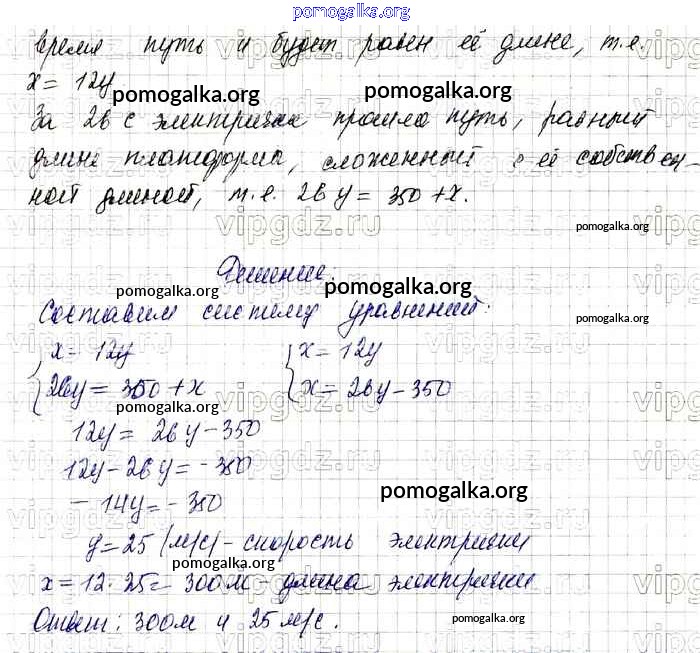 pomogalka.org
время путь и будет равен её длине, т.е.
x = 12y
За 26 с электричка прошла путь, равный
длине платформы, сложенный с её собствен-
ной длиной, т.е. 26y = 350 + x.
Решение:
Составим систему уравнений:
x = 12y x = 12y
26y = 350 + x x = 26y - 350
12y = 26y - 350
12y - 26y = - 350
- 14y = - 350
y = 25 (м/с) - скорость электрички
x = 12·25 = 300м - длина электрички
Ответ: 300м и 25 м/с.
pomogalka.org
pomogalka.org
pomogalka.org
pomogalka.org
pomogalka.org
pomogalka.org
pomogalka.org
pomogalka.org
pomogalka.org
pomogalka.org
pomogalka.org
pomogalka.org
vipgdz.ru